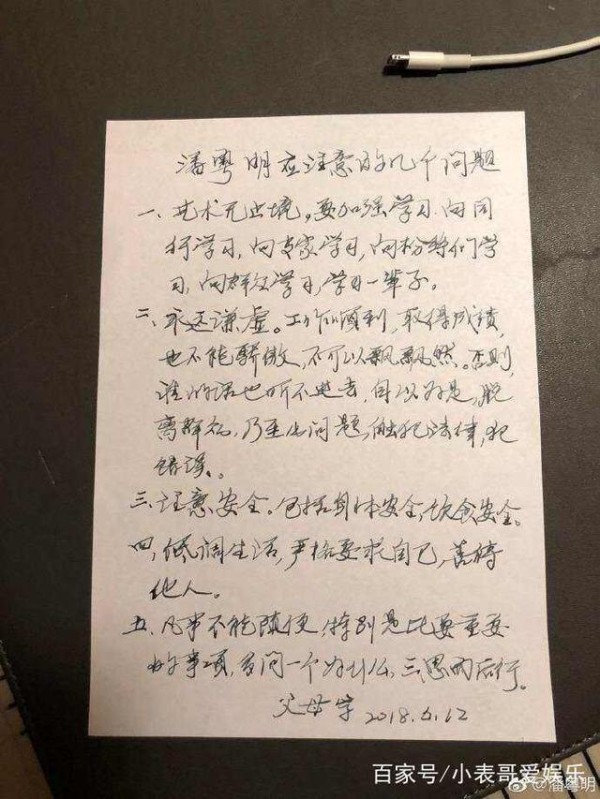 潘粤明应注意的几个问题
一、艺术无止境。要加强学习、向同
行学习,向专家学习,向粉丝们学
习,向群众学习,学习一辈子。
二、永远谦虚。工作顺利,取得成绩,
也不能骄傲,不可以飘飘然。否则,
谁的话也听不进去,自以为是,脱
离群众,乃至出问题,触犯法律,犯
错误。
三、注意安全。包括身体安全,饮食安全。
四、低调生活,严格要求自己,善待
他人。
五、凡事不能随便,特别是比较重要
的事项,多问一个为什么,三思而后行。
父母字 2018.6.12
百家号/小表哥爱娱乐
@潘粤明